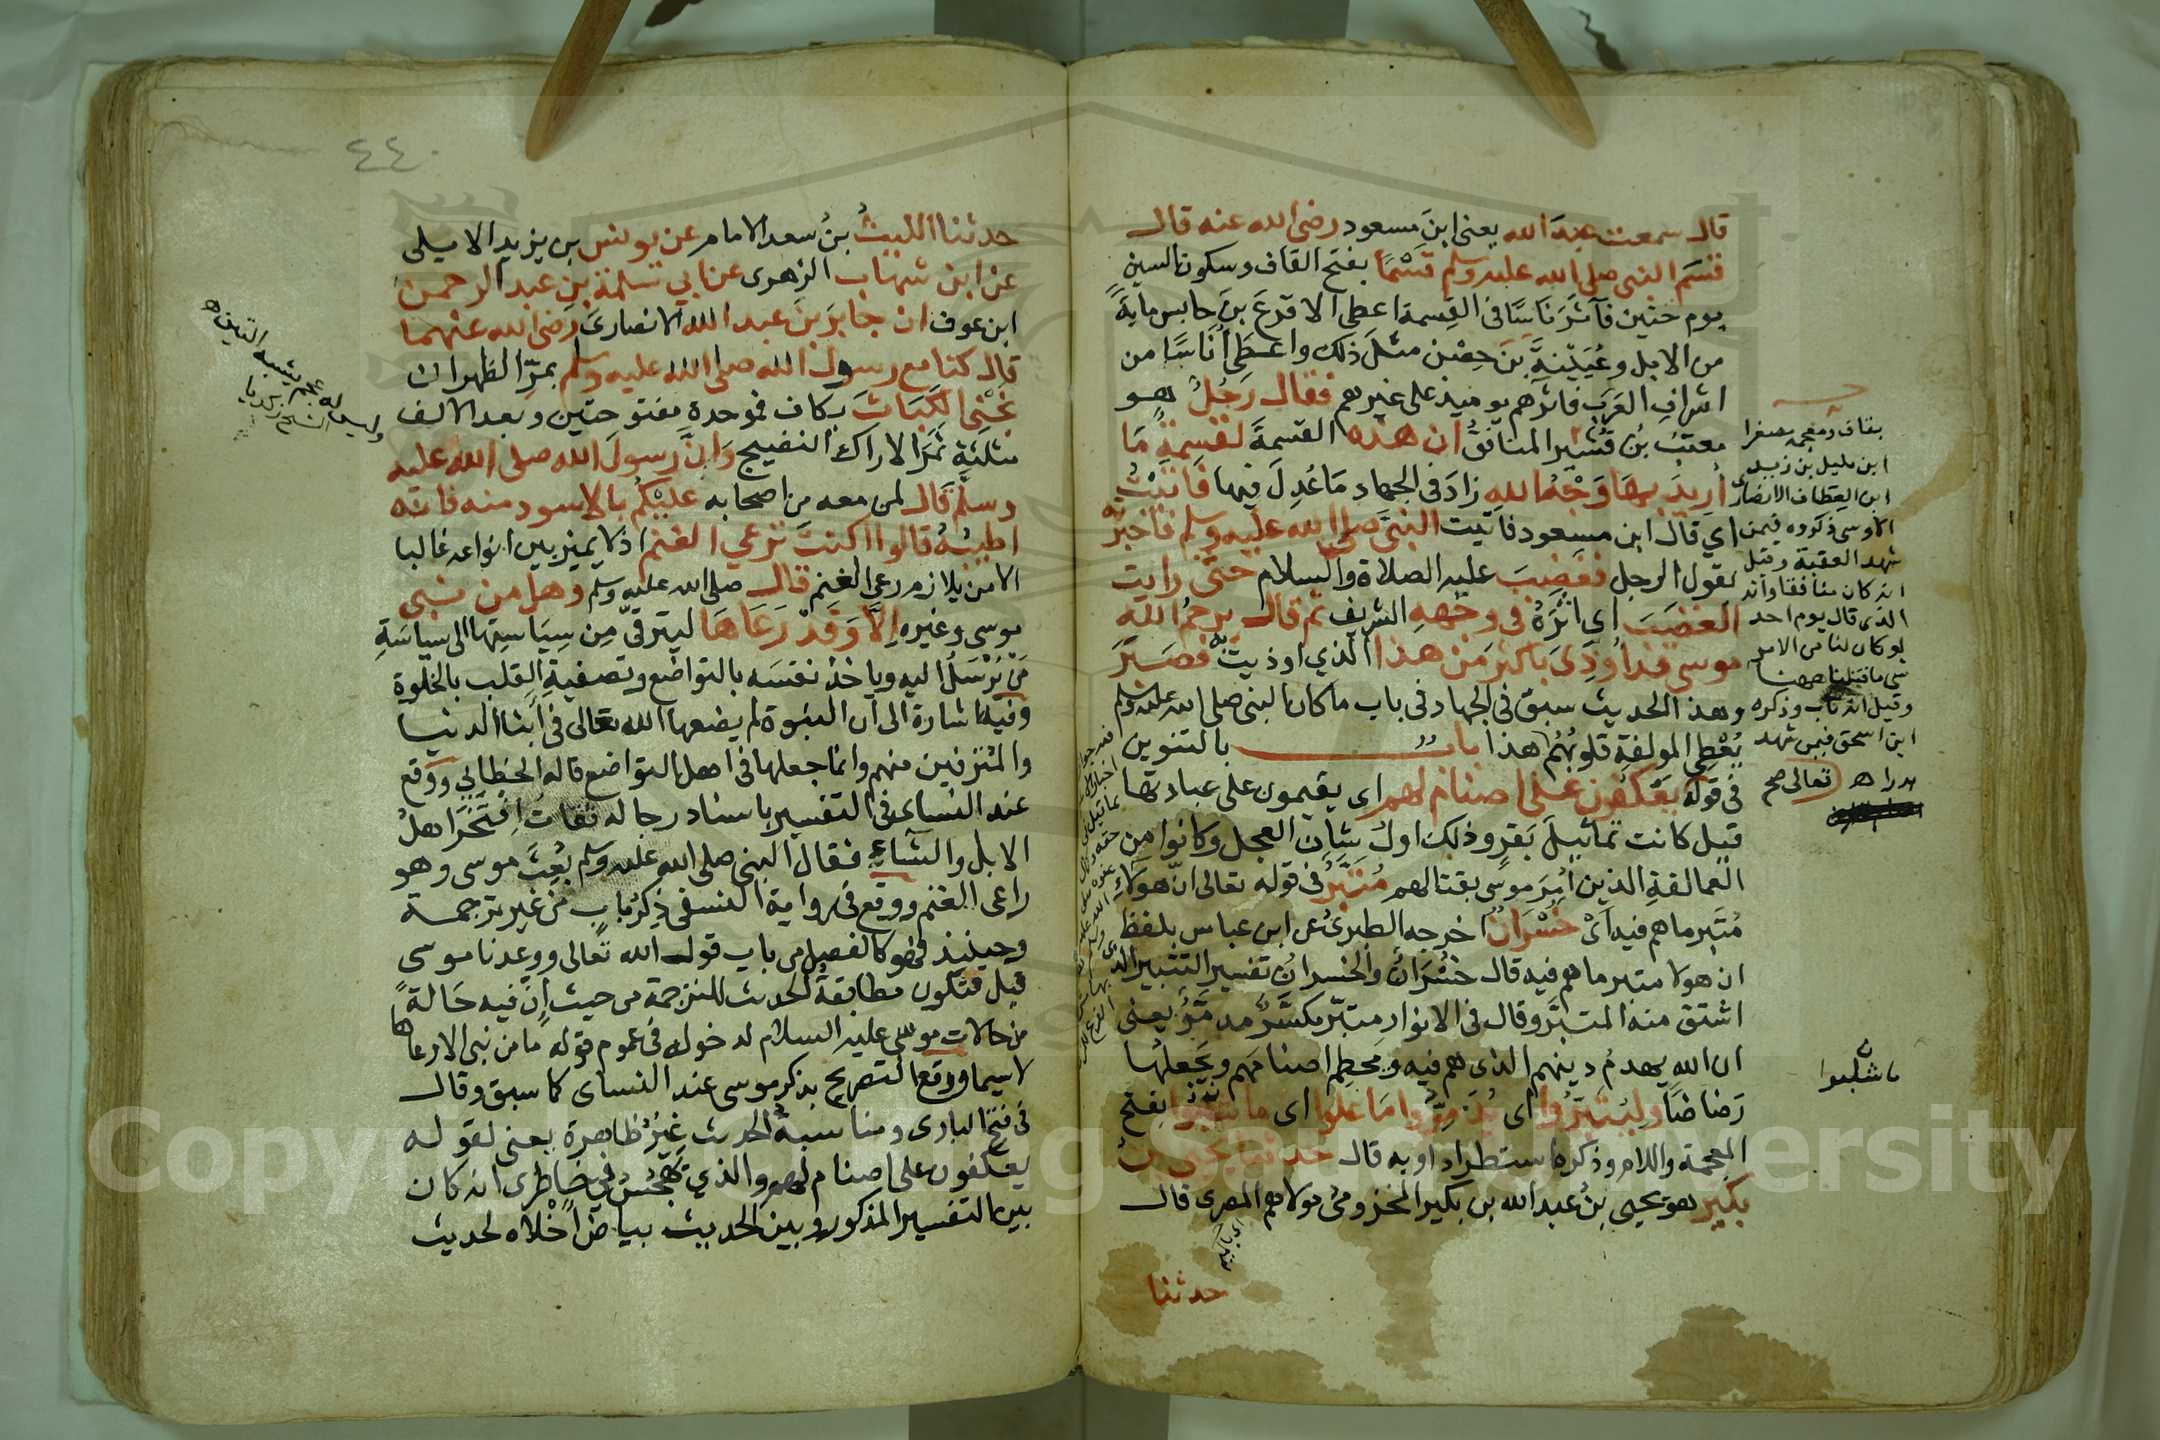 قال سمعت عبد الله يعنى ابن مسعود رضي الله عنه قال
قسم النبى صلى الله عليه وسلم قسْمًا بفتح القاف وسكون السين
يوم حنين فآثر ناسًا فى القسمة اعطى الاقرع بن حابس ماية
من الابل وعُيَيْنةَ بنَ حِصْن مثل ذلك واعطى أُناسًا من
اشراف العرب فاثرهم يوميذ على غيرهم فقال رَجُلٌ هو
معتب بن قُشَير المنافق ان هذه القسمةَ لقسمةٌ مَا
اريدَ بها وَجْهُ الله زاد فى الجهاد مَا عُدِلَ فيها فاتيْتُ
اي قال ابن مسعود فاتيت النبىَّ صلى الله عليه وسلم فاخبرته
بقول الرجل فغضِبَ عليه الصلاة والسلام حتى رايت
الغضبَ اي اثَرَهُ في وجهِهِ الشريف ثم قال يرحمُ الله
موسى قد اُوذِىَ باكثرَ من هذا الذي اوذيت به فصَبَرَ
وهذا الحديث سبق فى الجهاد فى باب ما كان النبى صلى الله عليه وسلم
يُعْطِى المولفةِ قلوبُهُم هذا باب بالتنوين
فى قوله يَعْكفُونَ على اصنام لهم اى يقيمون على عبادتها
قيل كانت تماثيلَ بَقَرٍ وذلك اول شان العجل وكانوا من
العمالقةِ الذين اُمِرَ موسى بقتالهم مُتَبَّرٌ فى قوله تعالى انّ هولاءِ
مُتَبر ما هم فيه اىْ خُسْرَانٌ اخرجه الطبرىُّ عن ابن عباس بلفظ
ان هولا متبر ما هم فيه قال خُسْرَانٌ والخسرانُ تفسير التتبير الذى
اشتق منه المتبَّر وقال فى الانوار متبّر مكسَّر مدمَّر يعنى
ان الله يهدم دينهم الذى هم فيه ويحطم اصنامهم ويجعلها
رَضاضًا وليُتَبّرُوا اى يُدَمِّرُوا مَا علوا اى ما غلبوا بفتح
المعجمة واللام وذكره استطرادا وبه قال حدثنا يحيى بنُ
بكير هو يحيى بنُ عبد الله بن بكير المخزومىُّ مولاهم المصرى قال
حدثنا
بقاف ومعجمة مصغرا
ابن مليل بن زيد
ابن العطاف الانصارى
الاوسى ذكروه فيمن
شهد العقبة وقيل
انه كان منافقا وانه
الذى قال يوم احد
لو كان لنا من الامر
شى ما قتلنا ههنا
وقيل انه تاب وذكره
ابن اسحق فيمن شهد
بدرا هـ
تعالى صح
ما غلبوا
٤٤٠
حدثنا الليثُ بنُ سعد الامام عن يونس بن يزيد الايلى
عن ابن شهاب الزهرى عن ابي سَلمَة بن عبد الرحمن
ابن عوف ان جابرَ بنَ عبد الله الانصارىَّ رضى الله عنهما
قال كنا مع رسول الله صلى الله عليه وسلم بمرِّ الظهران
نجْنِى الكَبَاثَ بكاف فموحدة مفتوحتين وبعد الالف
مثلثة ثمَرَ الاراك النضيج وَانَّ رسولَ الله صلى الله عليه
وسلم قال لمن معه من اصحابه عليْكُم بالاسود منه فانه
اطيبُهُ قالوا اكنتَ ترْعَى الغنم اذ لا يميز بين انواعه غالبا
الا من يلازم رعى الغنم قال صلى الله عليه وسلم وهل من نبى
موسى وغيره اِلَّا وَقَدْ رَعَاهَا ليترقّى مِن سِيَاسِتها الى سياسَةِ
مَن يُرْسَلُ اليه وياخذ نفسَه بالتواضع وتصفيةِ القلب بالخلوة
وفيه اشارة الى ان النبوة لم يضعها الله تعالى فى ابنا الدنيا
والمترفين منهم وانما جعلها فى اهل التواضع قاله الخطابي ووقع
عند النسائى فى التفسير باسناد رجاله ثقات اِفتَخَرَ اهلُ
الابل والشاءِ فقال النبى صلى الله عليه وسلم بُعِثَ موسى وهو
راعى الغنم ووقع فى رواية النسفى ذِكرُ باب من غير ترجمة
وحينيذ فهو كالفصل من باب قوله الله تعالى ووعدنا موسى
قبل فتكون مطابقةُ الحديث للترجمة من حيث انّ فيه حَالةً
من حالات موسى عليه السلام لدخوله فى عموم قوله ما من نبى الا رعاها
لا سيما ووقع التصريح بذكر موسى عند النساى كما سبق وقال
فى فتح البارى ومناسبةُ الحديث غيرُ ظاهرة يعنى لقوله
يعكفون على اصنام لهم والذي يَهْجُسُ في خاطرى انه كان
بين التفسير المذكور وبين الحديث بياضٌ اخْلاه لحديث
Copyright © King Saud University